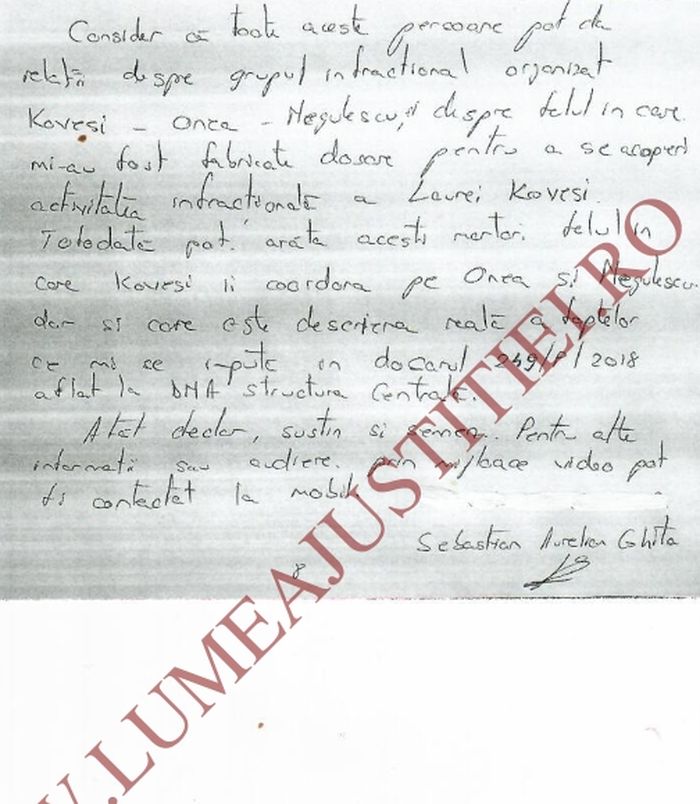 Consider că toate aceste persoane pot da
relații despre grupul infractional organizat
Kovesi - Onea - Negulescu, și despre felul in care
mi-au fost fabricate dosare pentru a se acoperi
activitatea infractională a Laurei Kovesi.
Totodată pot arăta acești martori felul in
care Kovesi ii coordona pe Onea si Negulescu
dar si care este descrierea reală a faptelor
ce mi se impută in dosarul 249/P/2018
aflat la DNA structura Centrală.
Atât declar, sustin si semnez. Pentru alte
informatii sau audiere prin mijloace video pot
fi contactat la mobil
Sebastian Aurelian Ghita
8
.LUMEAJUSTITIEI.RO